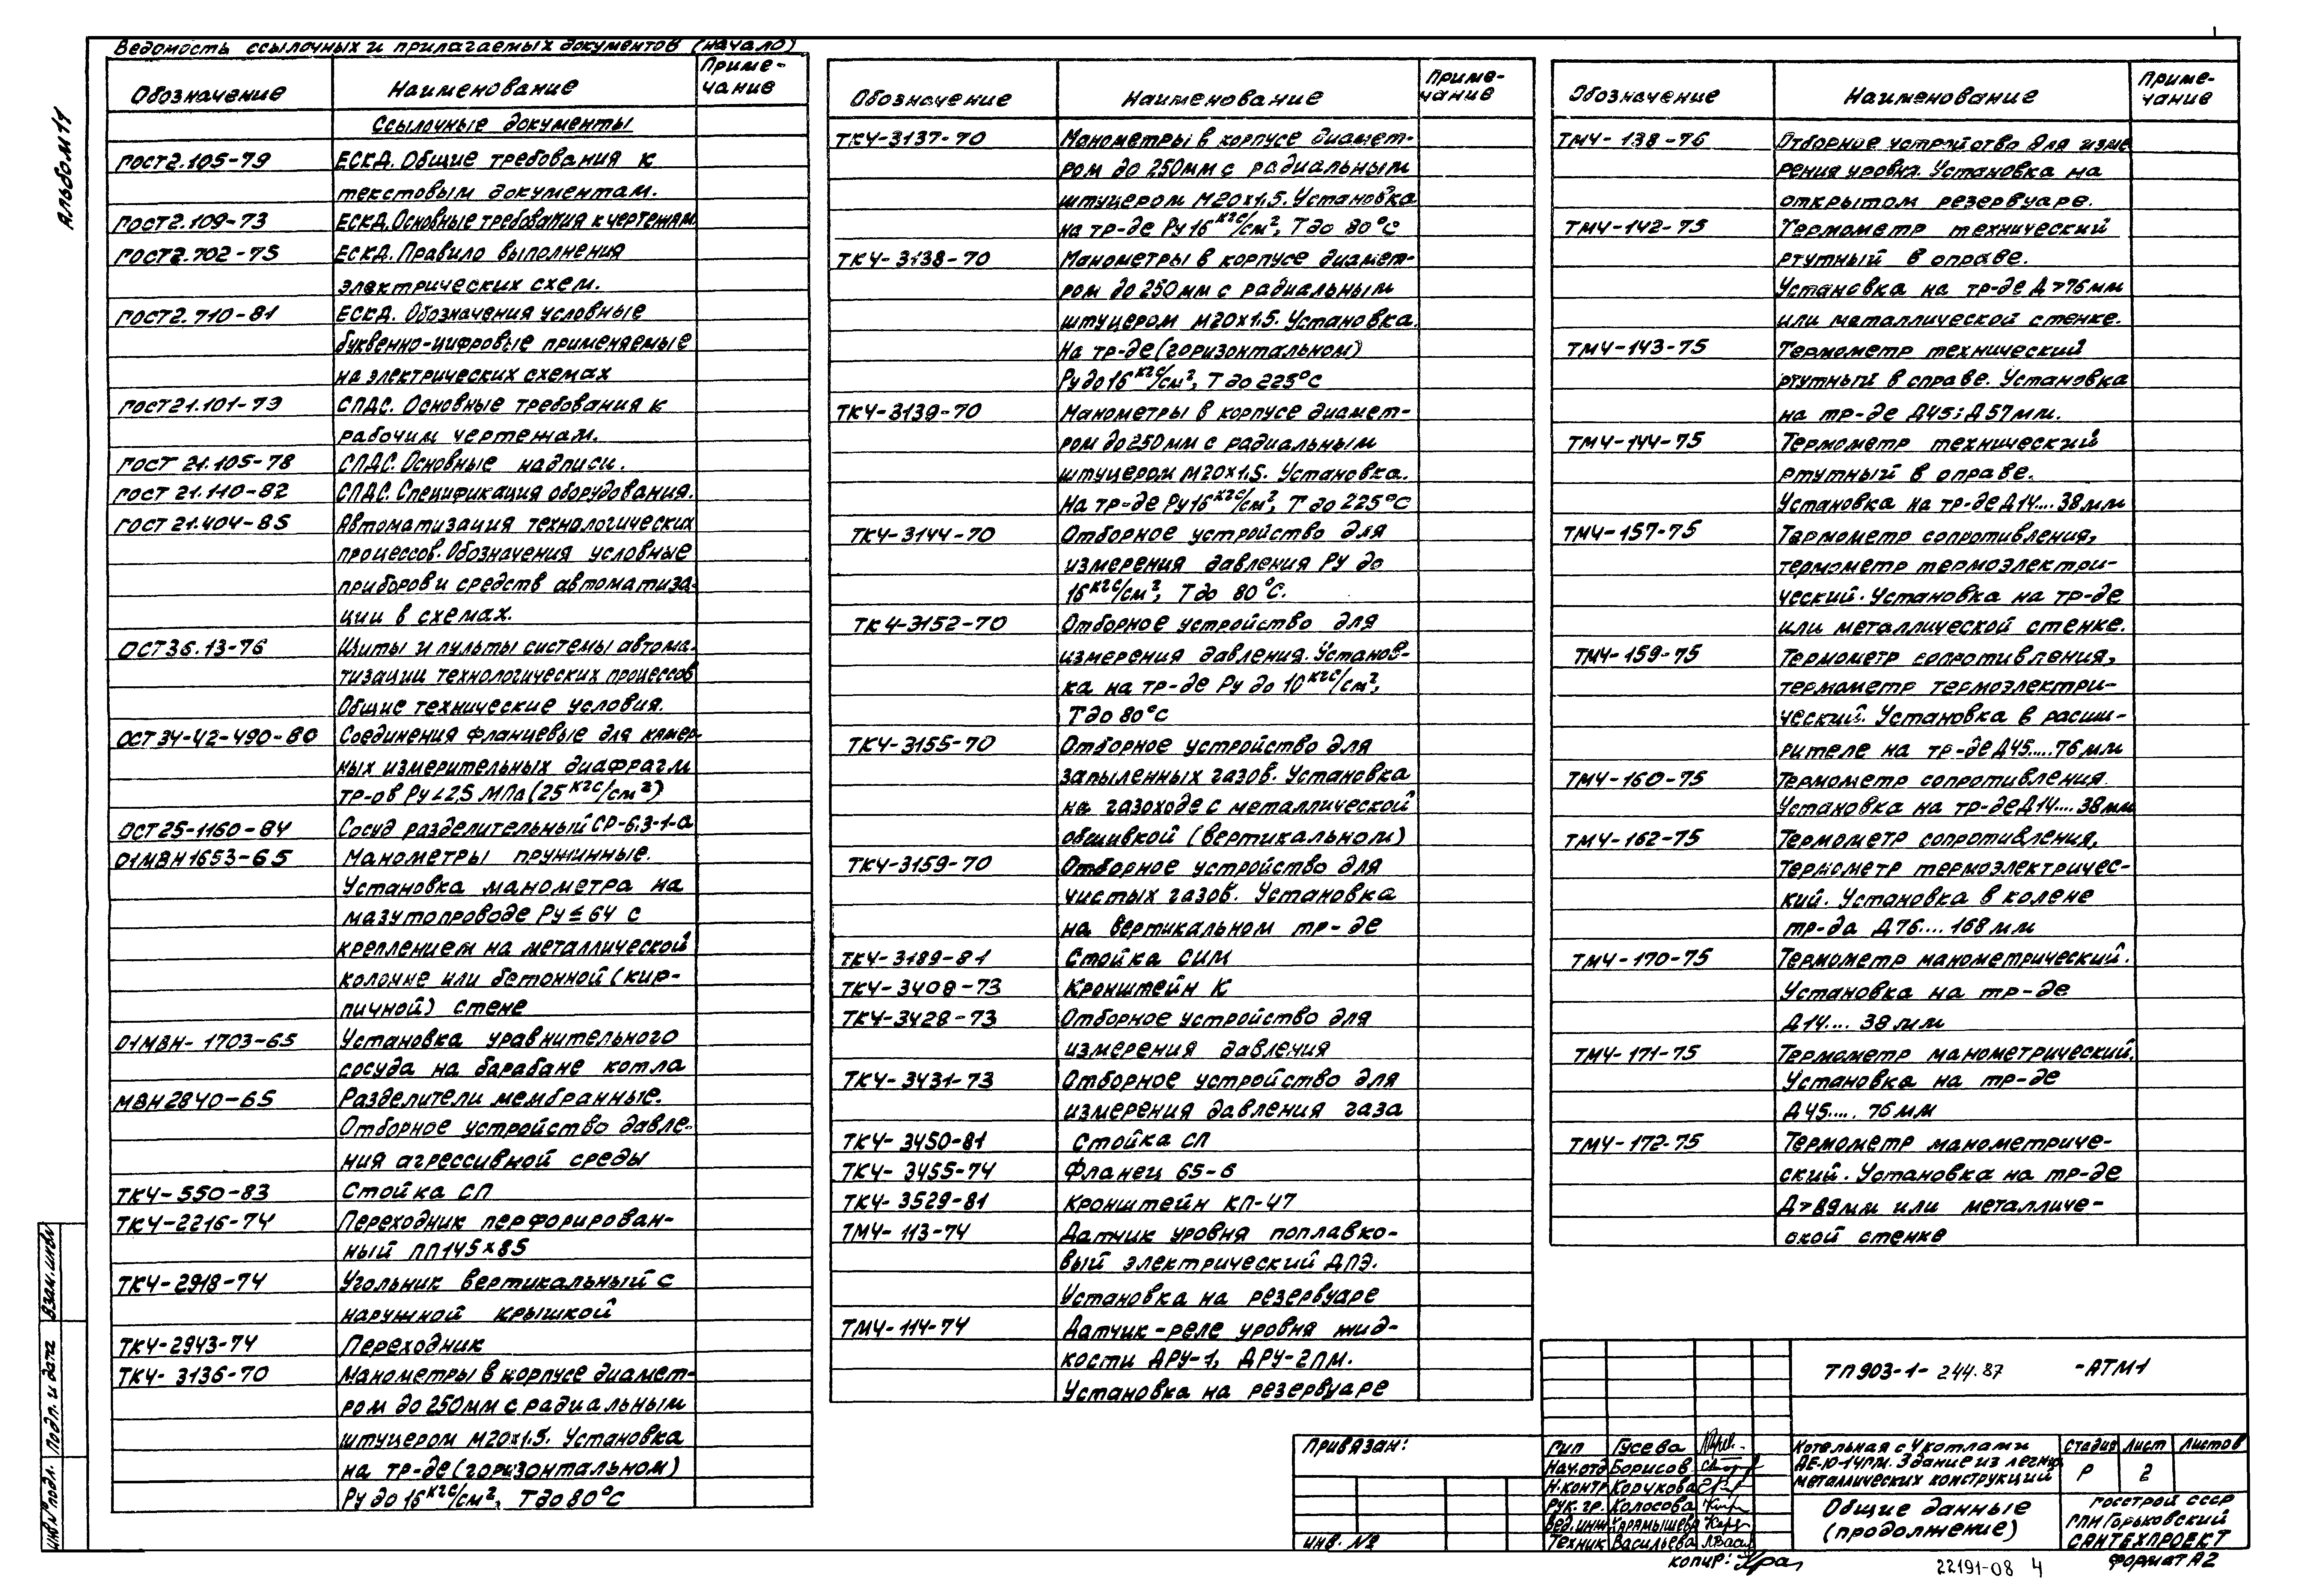 Альбом 11
Ведомость ссылочных и прилагаемых документов (начало)
Обозначение Наименование Приме-
чание
Ссылочные документы
ГОСТ 2.105-79 ЕСКД. Общие требования к
текстовым документам.
ГОСТ 2.109-73 ЕСКД. Основные требования к чертежам
ГОСТ 2.702-75 ЕСКД. Правило выполнения
электрических схем.
ГОСТ 2.710-81 ЕСКД. Обозначения условные
буквенно-цифровые применяемые
на электрических схемах
ГОСТ 21.101-79 СПДС. Основные требования к
рабочим чертежам.
ГОСТ 21.105-78 СПДС. Основные надписи.
ГОСТ 21.110-82 СПДС. Спецификация оборудования.
ГОСТ 21.404-85 Автоматизация технологических
процессов. Обозначения условные
приборов и средств автоматиза-
ции в схемах.
ОСТ 36.13-76 Щиты и пульты системы автома-
тизации технологических процессов
Общие технические условия.
ОСТ 34-42-490-80 Соединения фланцевые для камер-
ных измерительных диафрагм
тр-ов Ру<2,5 МПа (25 кгс/см²)
ОСТ 25-1160-84 Сосуд разделительный СР-6,3-1-а
01МВН 1653-65 Манометры пружинные.
Установка манометра на
мазутопроводе Ру ≤ 64 с
креплением на металлической
колонне или бетонной (кир-
пичной) стене
01МВН-1703-65 Установка уравнительного
сосуда на барабане котла
МВН 2840-65 Разделители мембранные.
Отборное устройство давле-
ния агрессивной среды
ТКЧ-550-83 Стойка СП
ТКЧ-2216-74 Переходник перфорирован-
ный ПП145×85
ТКЧ-2918-74 Угольник вертикальный с
наружной крышкой
ТКЧ-2943-74 Переходник
ТКЧ-3136-70 Манометры в корпусе диамет-
ром до 250мм с радиальным
штуцером М20×1,5. Установка
на тр-де (горизонтальном)
Ру до 16 кгс/см², Т до 80°С
Обозначение Наименование Приме-
чание
ТКЧ-3137-70 Манометры в корпусе диамет-
ром до 250мм с радиальным
штуцером М20×1,5. Установка
на тр-де Ру 16 кгс/см², Т до 80°С
ТКЧ-3138-70 Манометры в корпусе диамет-
ром до 250мм с радиальным
штуцером М20×1,5. Установка.
На тр-де (горизонтальном)
Ру до 16 кгс/см², Т до 225°С
ТКЧ-3139-70 Манометры в корпусе диамет-
ром до 250мм с радиальным
штуцером М20×1,5. Установка.
На тр-де Ру 16 кгс/см², Т до 225°С
ТКЧ-3144-70 Отборное устройство для
измерения давления Ру до
16 кгс/см², Т до 80°С.
ТКЧ-3152-70 Отборное устройство для
измерения давления. Установ-
ка на тр-де Ру до 10 кгс/см²,
Т до 80°С
ТКЧ-3155-70 Отборное устройство для
запыленных газов. Установка
на газоходе с металлической
обшивкой (вертикальном)
ТКЧ-3159-70 Отборное устройство для
чистых газов. Установка
на вертикальном тр-де
ТКЧ-3189-81 Стойка СИМ
ТКЧ-3408-73 Кронштейн К
ТКЧ-3428-73 Отборное устройство для
измерения давления
ТКЧ-3431-73 Отборное устройство для
измерения давления газа
ТКЧ-3450-81 Стойка СП
ТКЧ-3455-74 Фланец 65-6
ТКЧ-3529-81 Кронштейн КП-47
ТМЧ-113-74 Датчик уровня поплавко-
вый электрический ДПЭ.
Установка на резервуаре
ТМЧ-114-74 Датчик-реле уровня жид-
кости ДРУ-1, ДРУ-2ПМ.
Установка на резервуаре
Обозначение Наименование Приме-
чание
ТМЧ-138-76 Отборное устройство для изме
рения уровня. Установка на
открытом резервуаре.
ТМЧ-142-75 Термометр технический
ртутный в оправе.
Установка на тр-де Д>76мм
или металлической стенке.
ТМЧ-143-75 Термометр технический
ртутный в оправе. Установка
на тр-де Д45; Д57мм.
ТМЧ-144-75 Термометр технический
ртутный в оправе.
Установка на тр-де Д14....38мм
ТМЧ-157-75 Термометр сопротивления,
термометр термоэлектри-
ческий. Установка на тр-де
или металлической стенке.
ТМЧ-159-75 Термометр сопротивления,
термометр термоэлектри-
ческий. Установка в расши-
рителе на тр-де Д45....76мм
ТМЧ-160-75 Термометр сопротивления
Установка на тр-де Д14....38мм
ТМЧ-162-75 Термометр сопротивления,
термометр термоэлектричес-
кий. Установка в колене
тр-да Д76....168мм
ТМЧ-170-75 Термометр манометрический.
Установка на тр-де
Д14....38мм
ТМЧ-171-75 Термометр манометрический.
Установка на тр-де
Д45....76мм
ТМЧ-172-75 Термометр манометриче-
ский. Установка на тр-де
Д>89мм или металличе-
ской стенке
Взам. инв№
Подп. и дата
Инв № подл.
Привязан:
Инв. №
ТП 903-1-244.87 -АТМ1
ГИП Гусева
Нач. отд Борисов
Н. контр Корчкова
Рук. гр. Колосова
Вед. инж Карамышева
Техник Васильева
Котельная с 4 котлами
ДЕ-10-14ГМ. Здание из легких
металлических конструкций
Стадия Лист Листов
Р 2
Общие данные
(продолжение)
Госстрой СССР
ГПИ Горьковский
САНТЕХПРОЕКТ
Копир:
22191-08 4
Формат А2